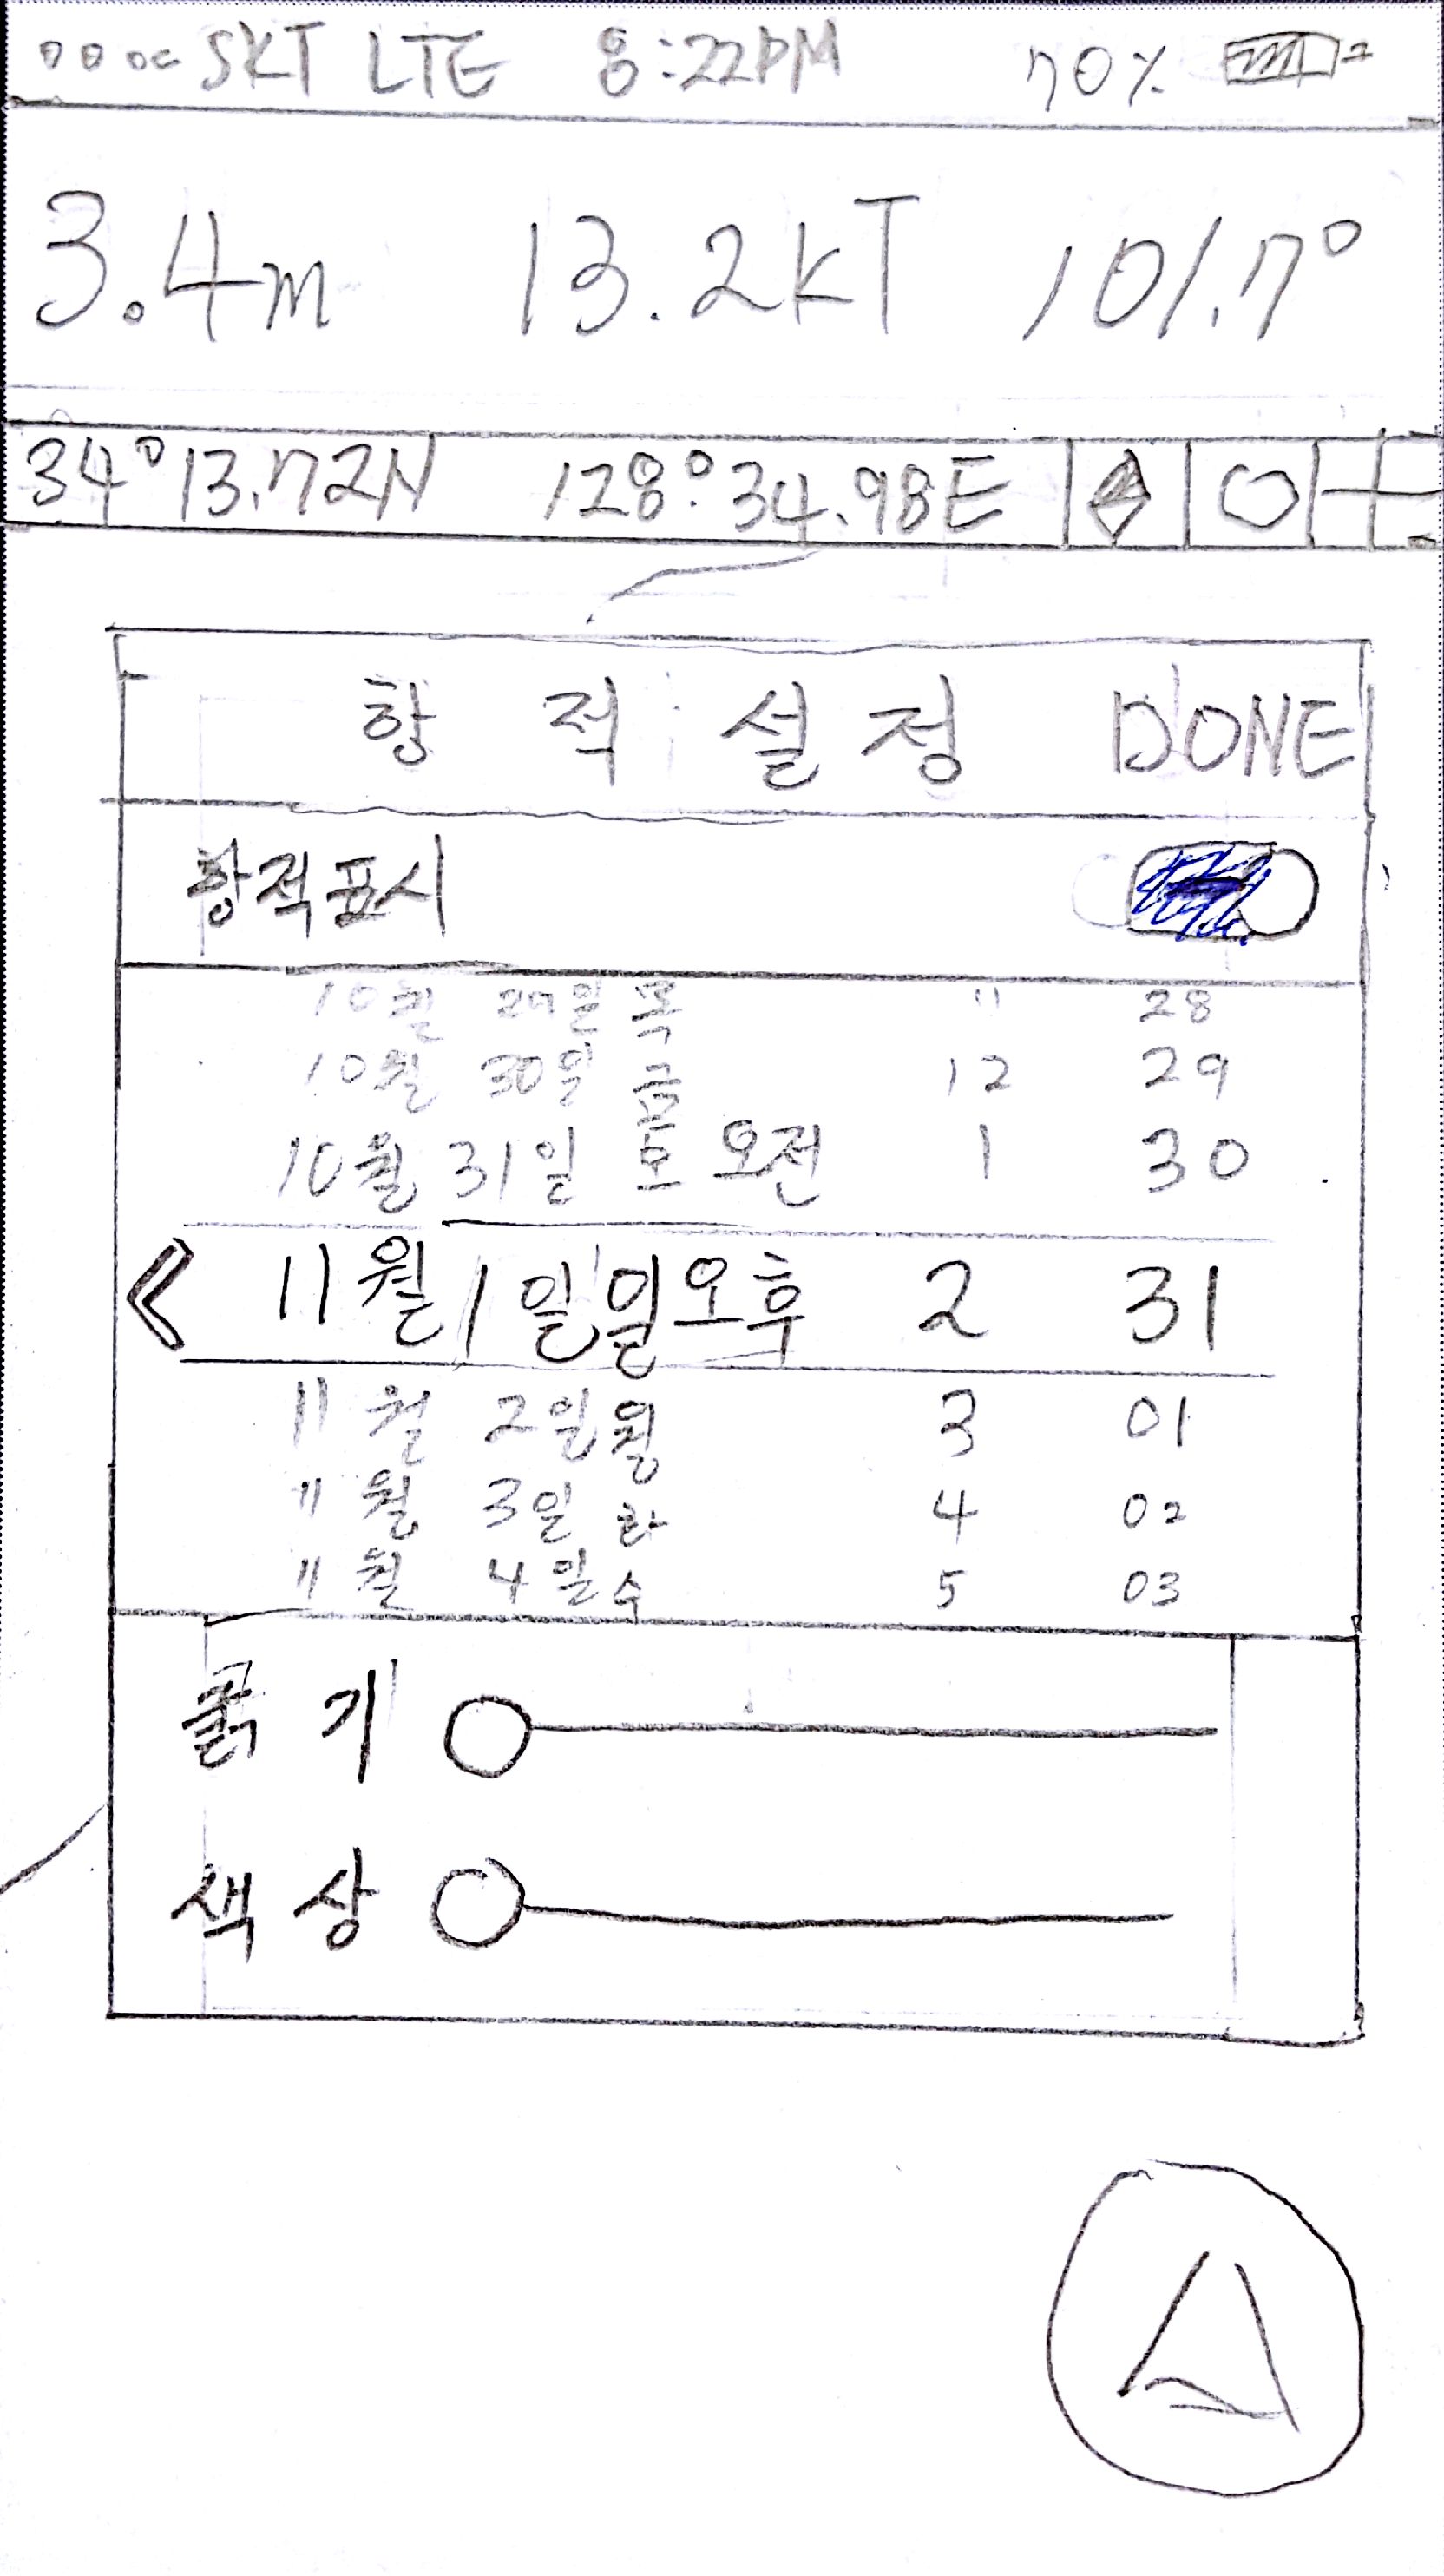 SKT LTE 8:22PM 70%
3.4m 13.2kT 101.7°
34°13.72N 128°34.98E
항적설정 DONE
항적표시
10월 29일 목 11 28
10월 30일 금 12 29
10월 31일 토 오전 1 30
《 11월 1일 일 오후 2 31
11월 2일 월 3 01
11월 3일 화 4 02
11월 4일 수 5 03
굵기
색상